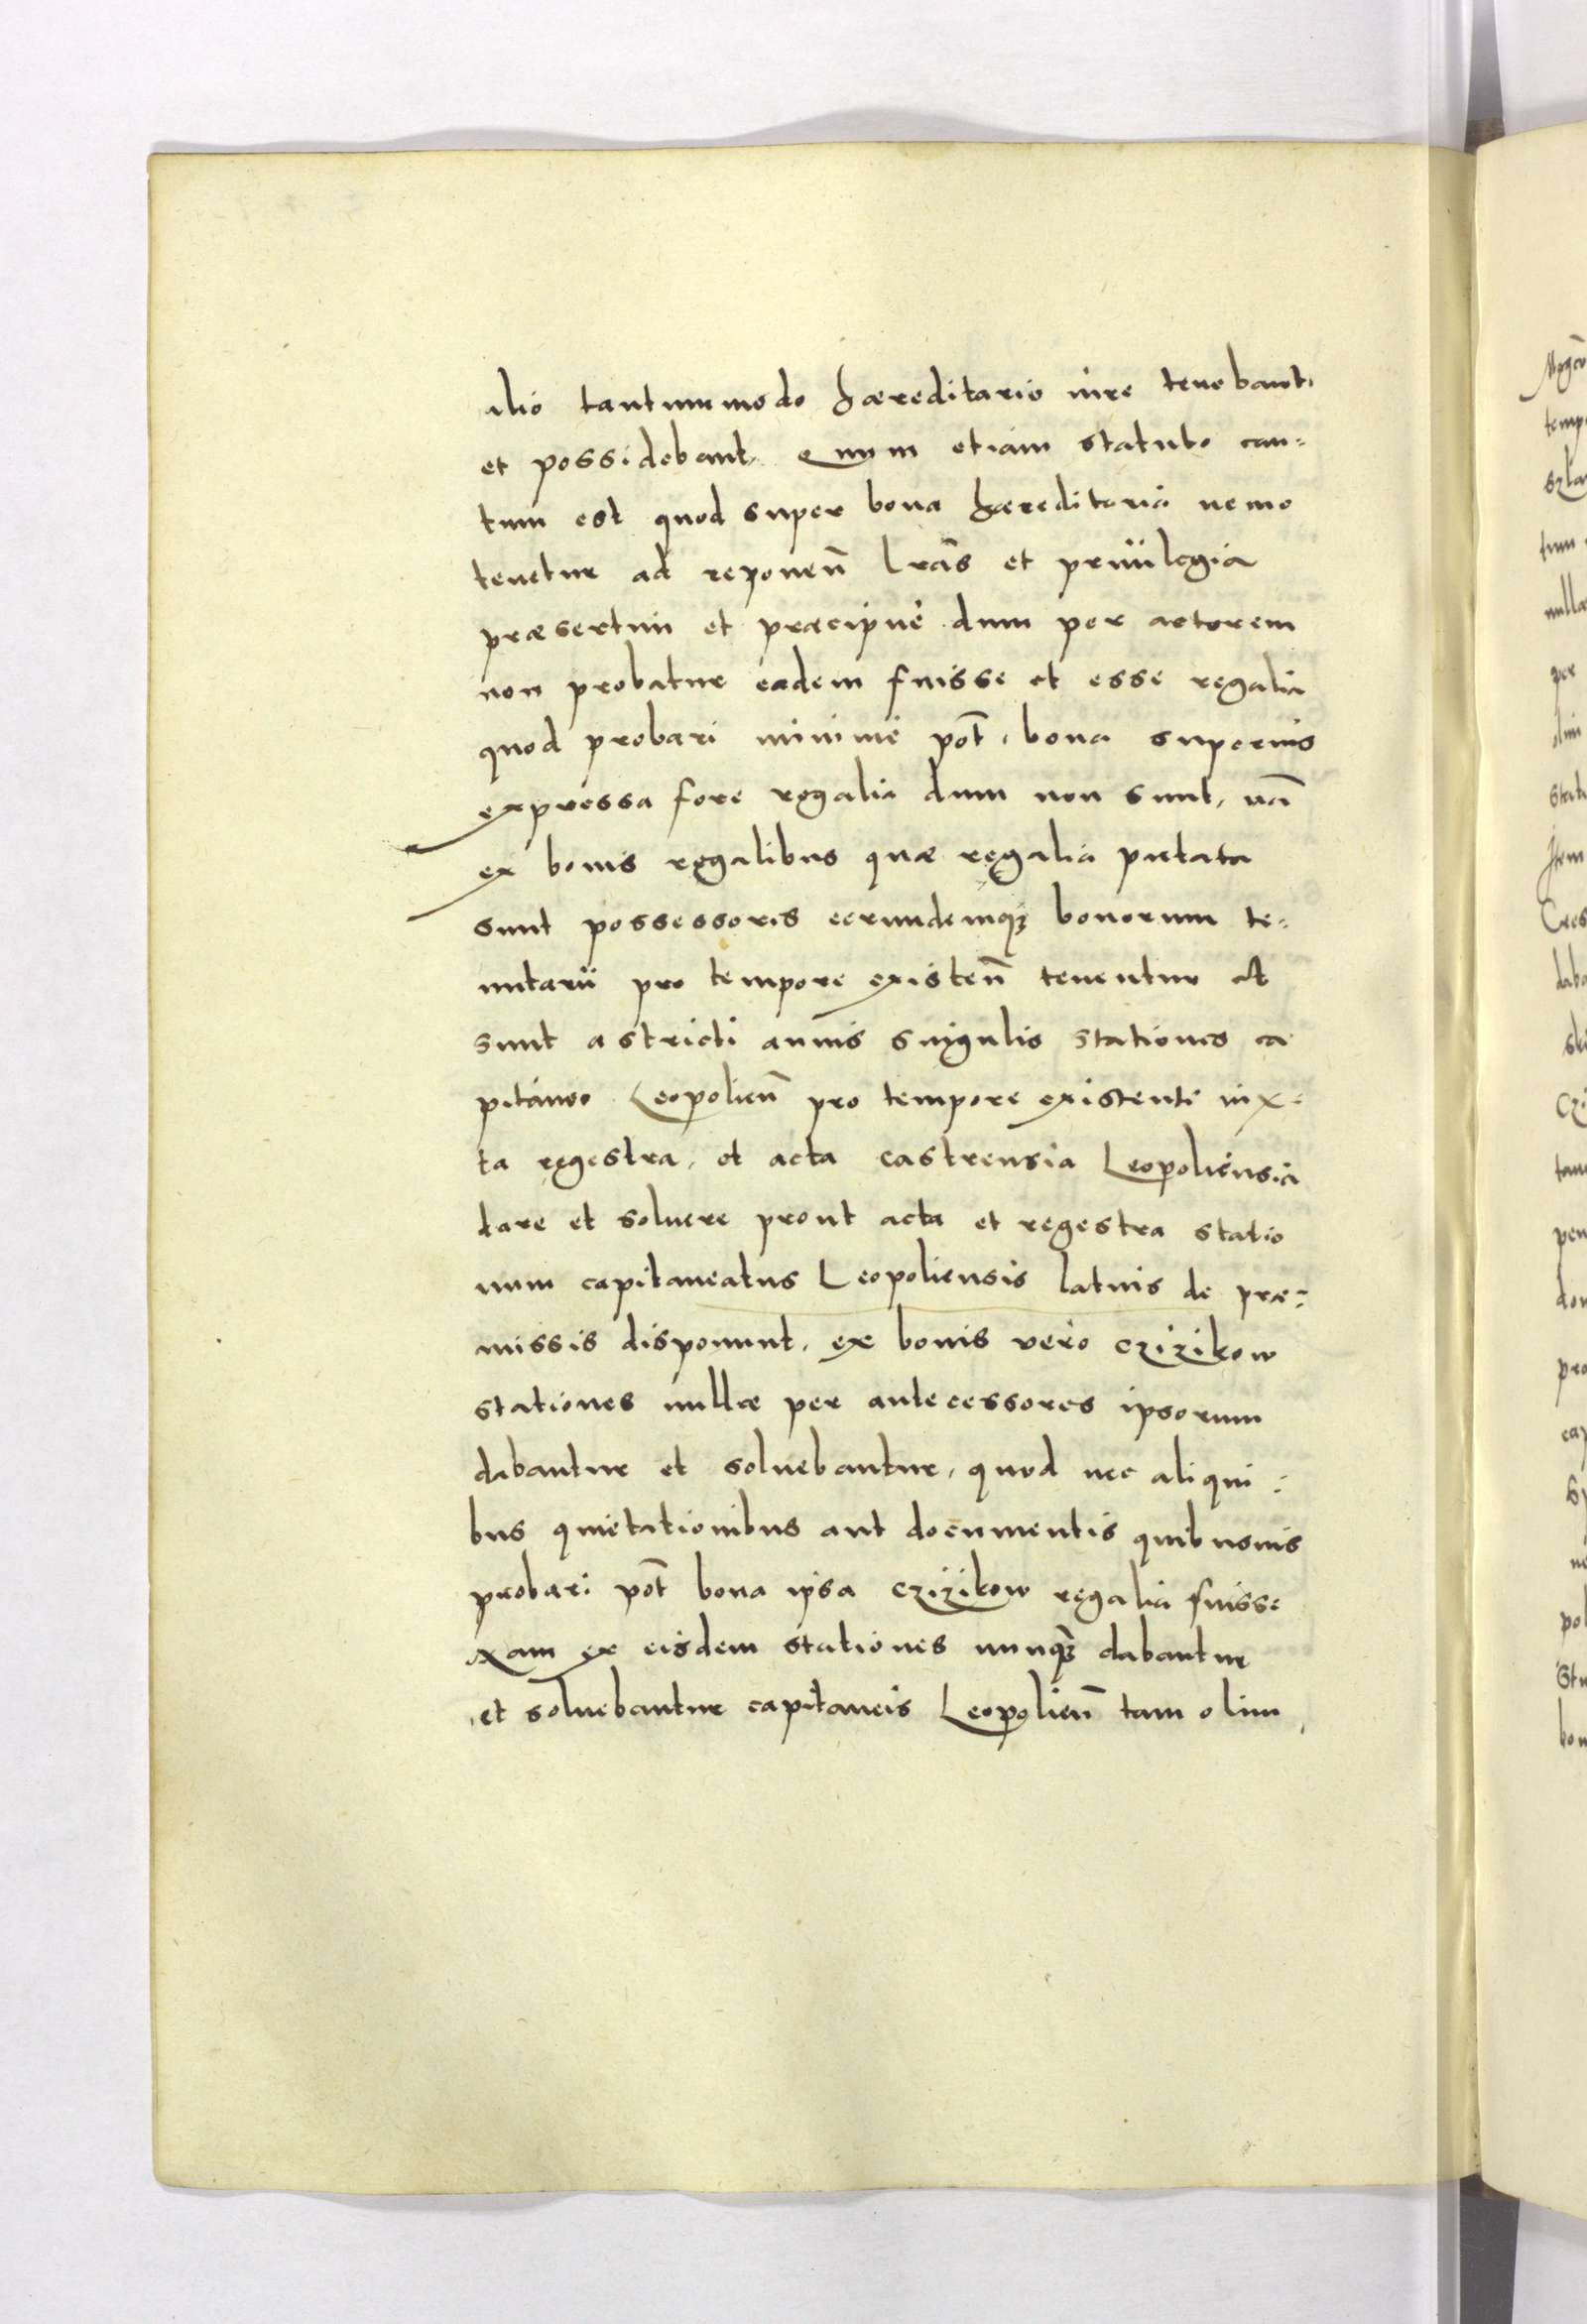 alio tantummodo hæreditario iure tenebant,
et possidebant, quum etiam statuto cau=
tum est quod super bona hæreditaria nemo
tenetur ad reponeñ lr̃as et priuilegia
præsertim et præcipuè dum per actorem
non probatur eadem fuisse et esse regalia
quod probari minimè pot̃, bona superius
expressa fore regalia dum non sunt, nã
ex bonis regalibus quæ regalia putata
sunt possessoris eorundemqꝫ bonorum te=
nutarii pro tempore existeñ tenentur et
sunt astricti annis singulis stationes ca
pitaneo Leopolieñ pro tempore existenti iux=
ta regestra, et acta castrensia Leopoliensia
dare et soluere prout acta et regestra statio
num capitaneatus Leopoliensis latius de præ=
missis disponunt, ex bonis vero Czizikow
stationes nullæ per antecessores ipsorum
dabantur et soluebantur, quod nec aliqui=
bus quietationibus aut documentis quibusuis
probari pot̃ bona ipsa Czizikow regalia fuisse
Nam ex eisdem stationes nunqꝫ dabantur
et soluebantur capitaneis Leopolieñ tam olim